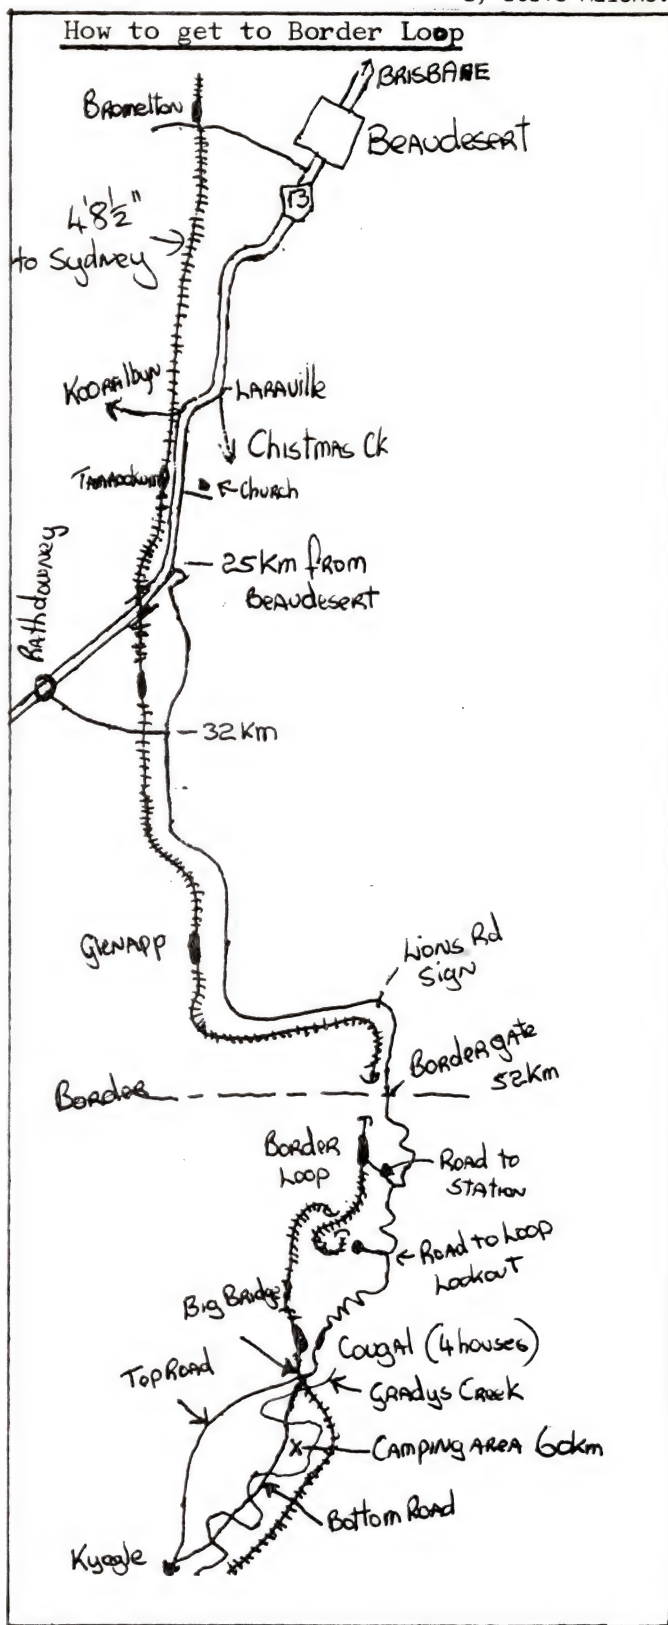 How to get to Border Loop
BRISBANE
Bromelton
Beaudesert
13
4'8½"
to Sydney
Kooralbyn
LARAVILLE
Chistmas Ck
Church
25Km from
Beaudesert
Rathdowney
32Km
Glenapp
Lions Rd
Sign
Border gate
52Km
Border
Border
Loop
Road to
Station
Road to Loop
Lookout
Big Bridge
Cougal (4 houses)
Top Road
Gradys Creek
X
Camping Area 60km
Bottom Road
Kyogle